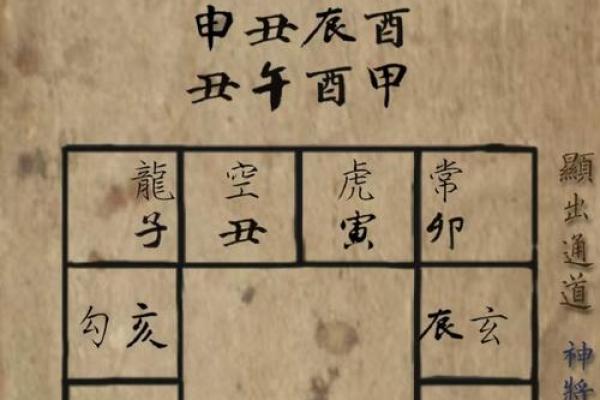 申丑辰酉
丑午酉甲
龍 空 虎 常
子 丑 寅 卯
勾亥 辰玄
顯出通道 神將